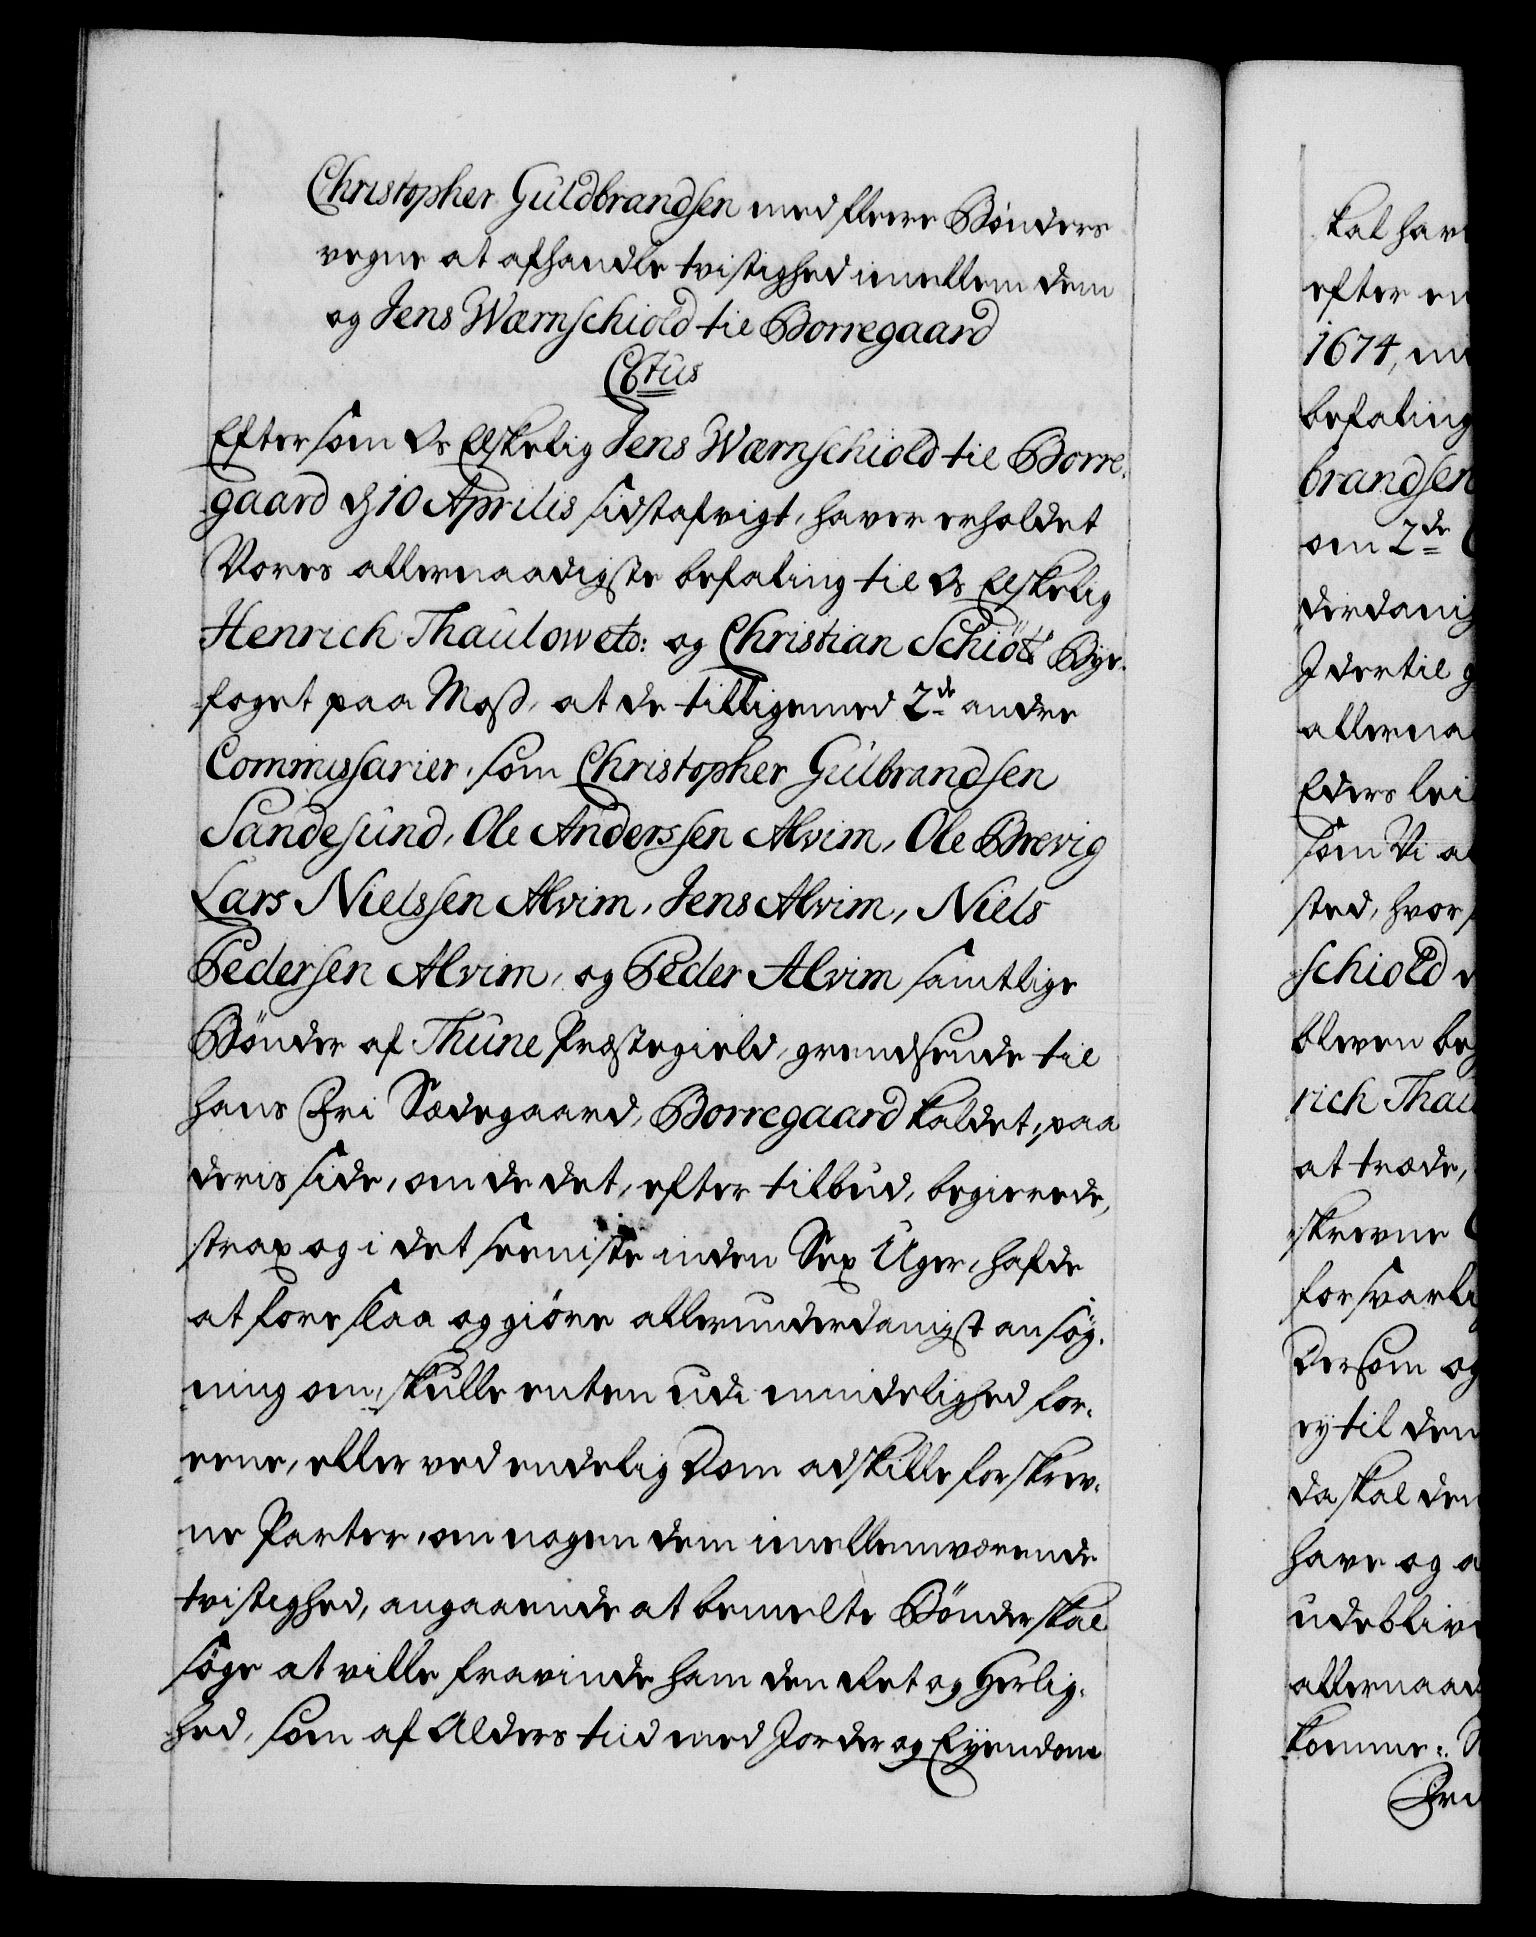 Christopher Guldbrandsen med fleere Bønders
vegne at afhandle tvistighed imellem dem
og Jens Wærnschiold til Borregaard
C6tus
Eftersom Os Elskelig Jens Wærnschiold til Borre-
gaard d 10 Aprilis sidstafvigt, haver erholdet
Vores allernaadigste befaling til Os Elskelig
Henrich Thaulow etc: og Christian Schiøt Bye-
foget paa Moss, at de tilligemed 2de andre
Commissarier, som Christopher Gulbrandsen
Sandesund, Ole Anderssen Alvim, Ole Brevig
Lars Nielssen Alvim, Jens Alvim, Niels
Pedersen Alvim, og Peder Alvim samtlige
Bønder af Thune Præstegield, grendsende til
hans Fri Sædegaard, Borregaard kaldet, paa
deris side, om de det, efter tilbud, begierede,
strax og i det seeniste inden Sex Uger, hafde
at foreslaa og giøre allerunderdanigst ansøg-
ning om, skulle enten udi mindelighed for-
eene, eller ved endelig Dom adskille forskrev-
ne Parter, om nogen dem imellemværende
tvistighed, angaaende at bemelte Bønder skal
søge at ville fravinde ham den Ret og Herlig-
hed, som af Alders tiid med Jorder og Eyendom
kal hav
efter en
1674, m
befaling
brandsen
om 2de
derdani
I dertil g
allerna
Eders lei
som Vi a
sted, hvor
schiold
bleven beg
rich Thau
at træde,
skrevne
forsvarli
Dersom og
ey til den
da skal den
have og a
udeblive
allernaad
komme.
Fri